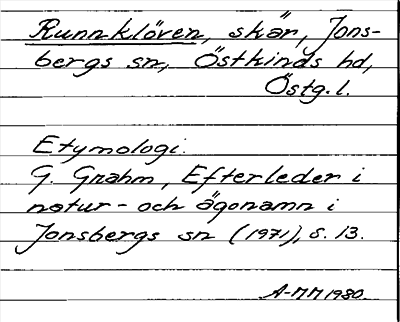 Runnklöven, skär, Jons-
bergs sn, Östkinds hd,
Östg.l.
Etymologi.
G. Grahm, Efterleder i
natur- och ägonamn i
Jonsbergs sn (1971), s. 13.
A-MM 1980